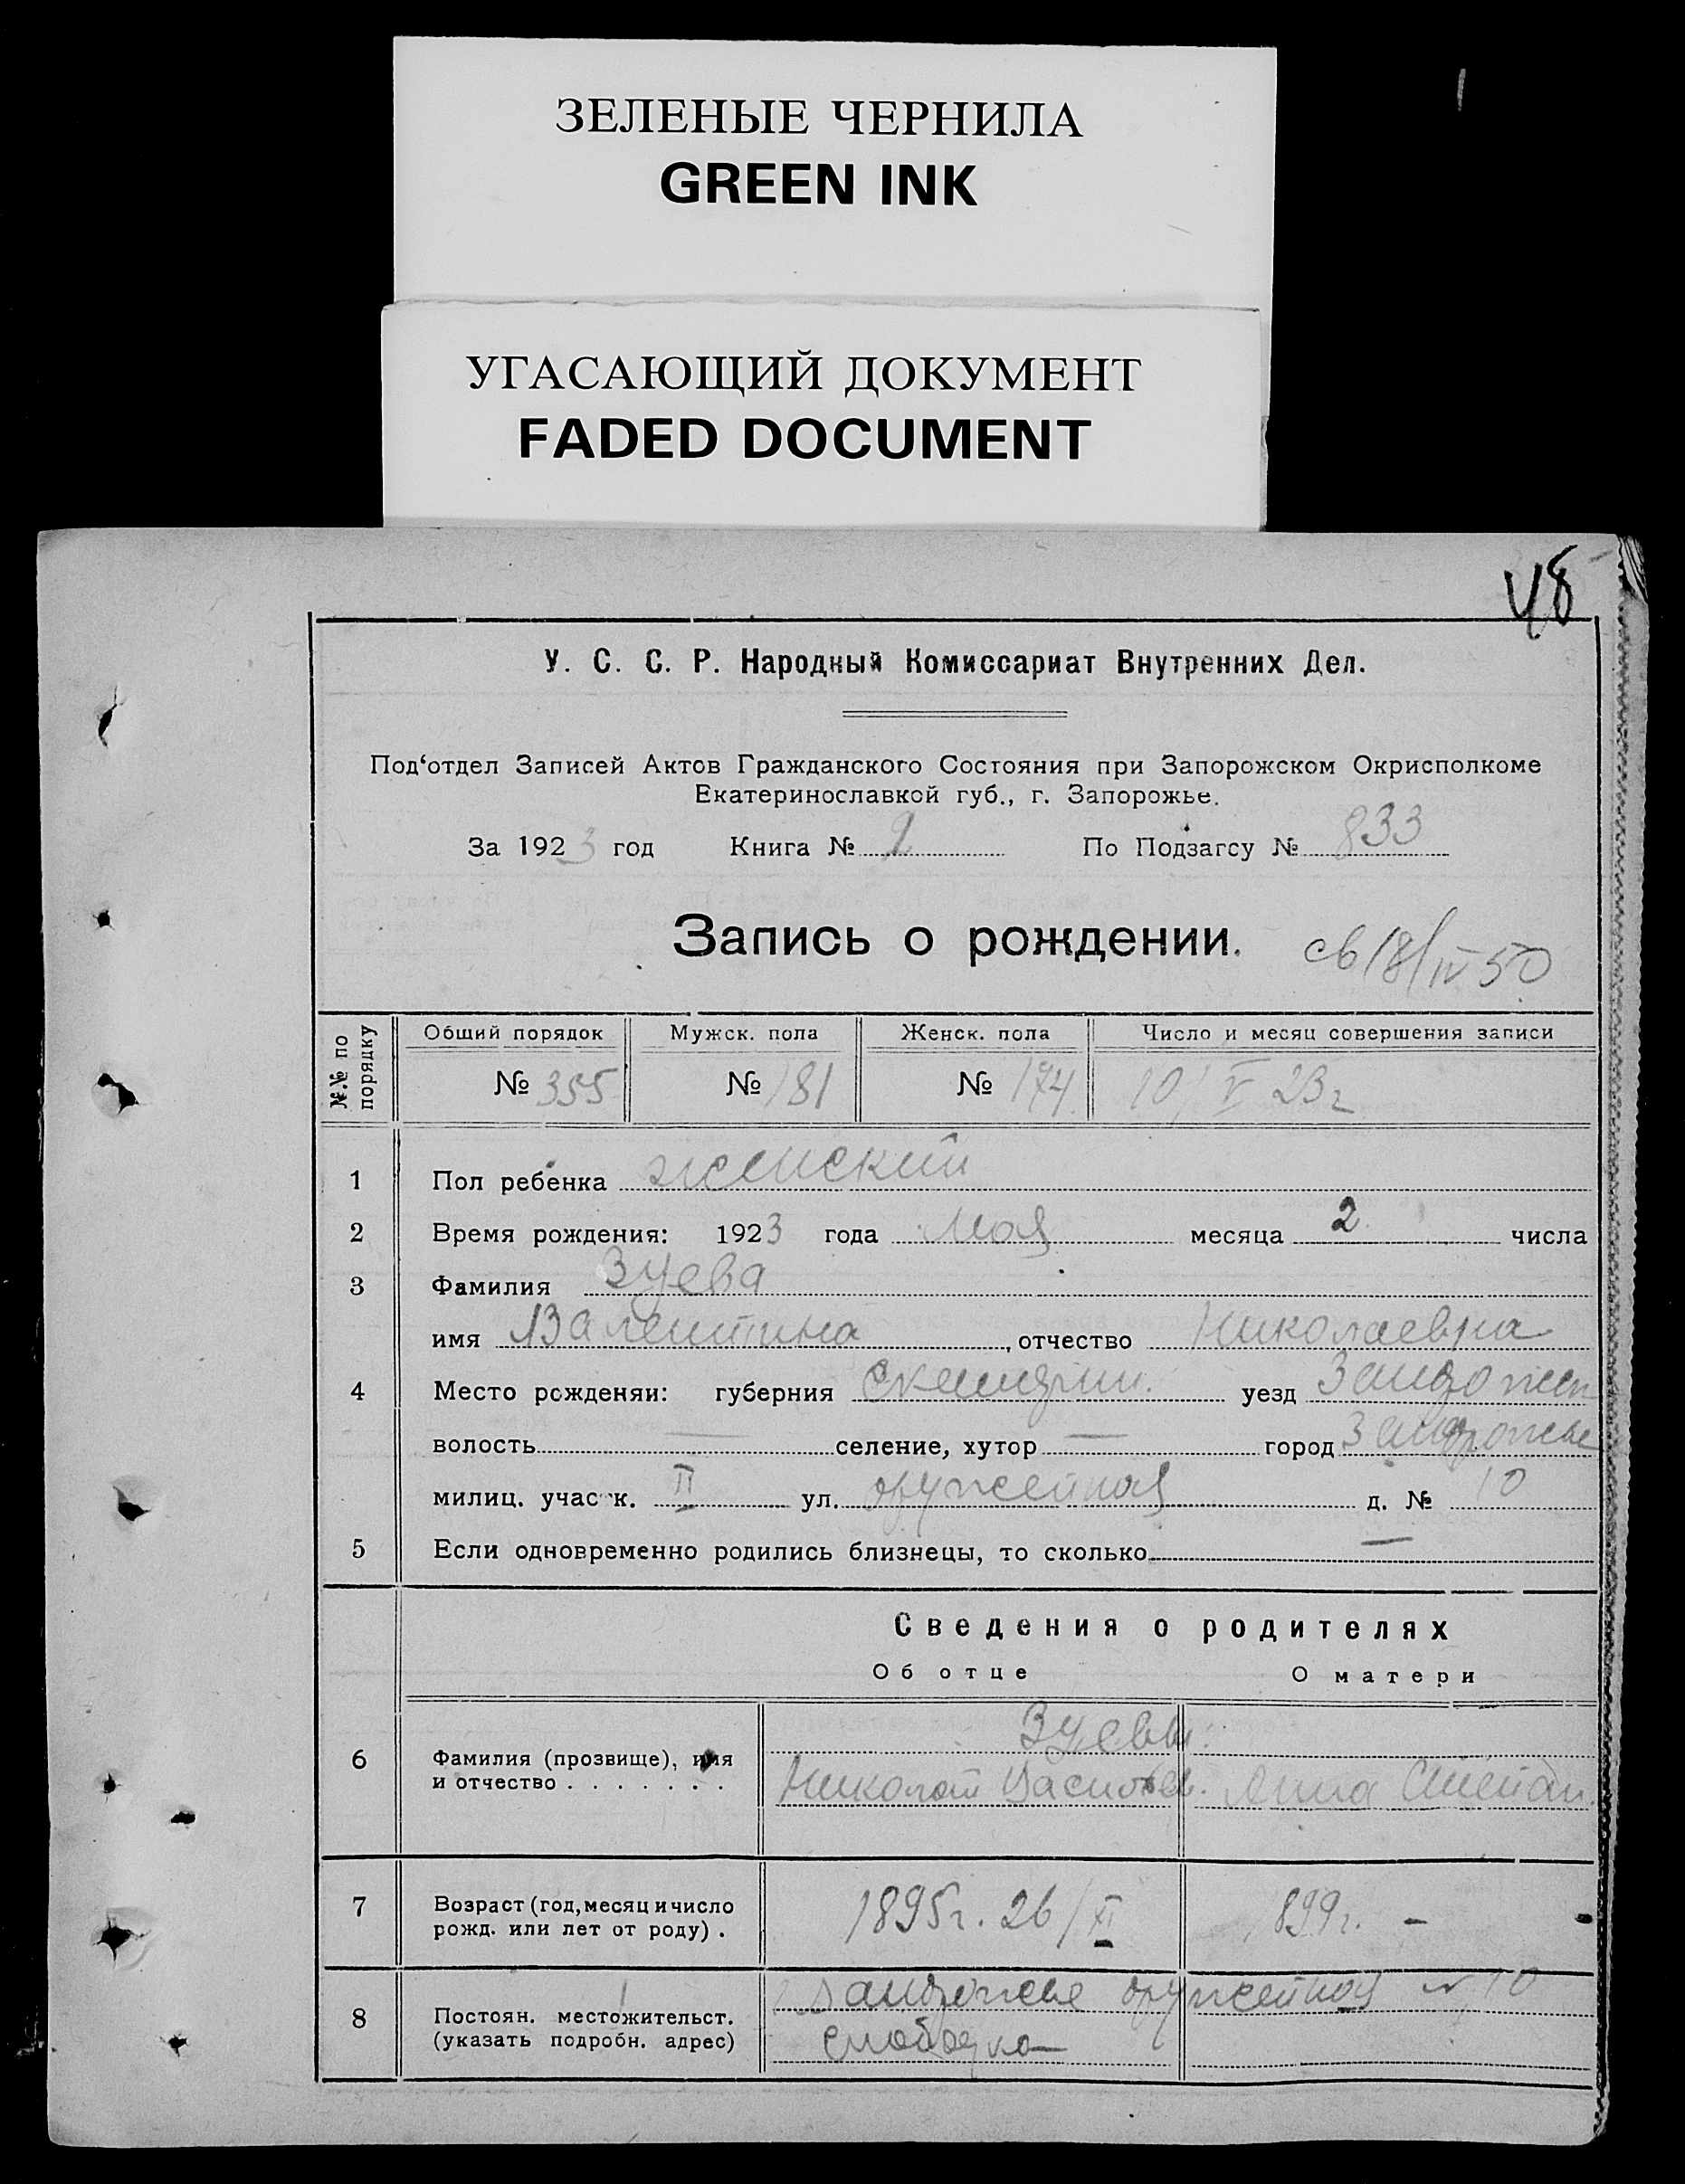 ЗЕЛЕНЫЕ ЧЕРНИЛА
GREEN INK
УГАСАЮЩИЙ ДОКУМЕНТ
FADED DOCUMENT
48
У. С. С. Р. Народный Комиссариат Внутренних Дел.
Под‘отдел Записей Актов Гражданского Состояния при Запорожском Окрисполкоме
Екатеринославкой губ., г. Запорожье.
За 1923 год Книга № 2 По Подзагсу № 833
Запись о рождении. св 18/IV 50
№.№ по порядку
Общий порядок Мужск. пола Женск. пола Число и месяц совершения записи
№ 355 № 181 № 174 10/V 23 г
1 Пол ребенка женский
2 Время рождения: 1923 года мая месяца 2 числа
3 Фамилия Зуева
имя Валентина, отчество Николаевна
4 Место рожденяи: губерния уезд Запорожск
волость — селение, хутор — город Запорожье
милиц. участк. II ул. оружейная д. № 10
5 Если одновременно родились близнецы, то сколько —
Сведения о родителях
Об отце О матери
Зуевы
6 Фамилия (прозвище), имя
и отчество . . . . . . . Николай Васильев. Анна Степан.
7 Возраст (год, месяц и число
рожд. или лет от роду) . 1895 г. 26/XI 899 г. –
8 Постоян. местожительст.
(указать подробн. адрес)
Запорожье оружейная № 10
слободка